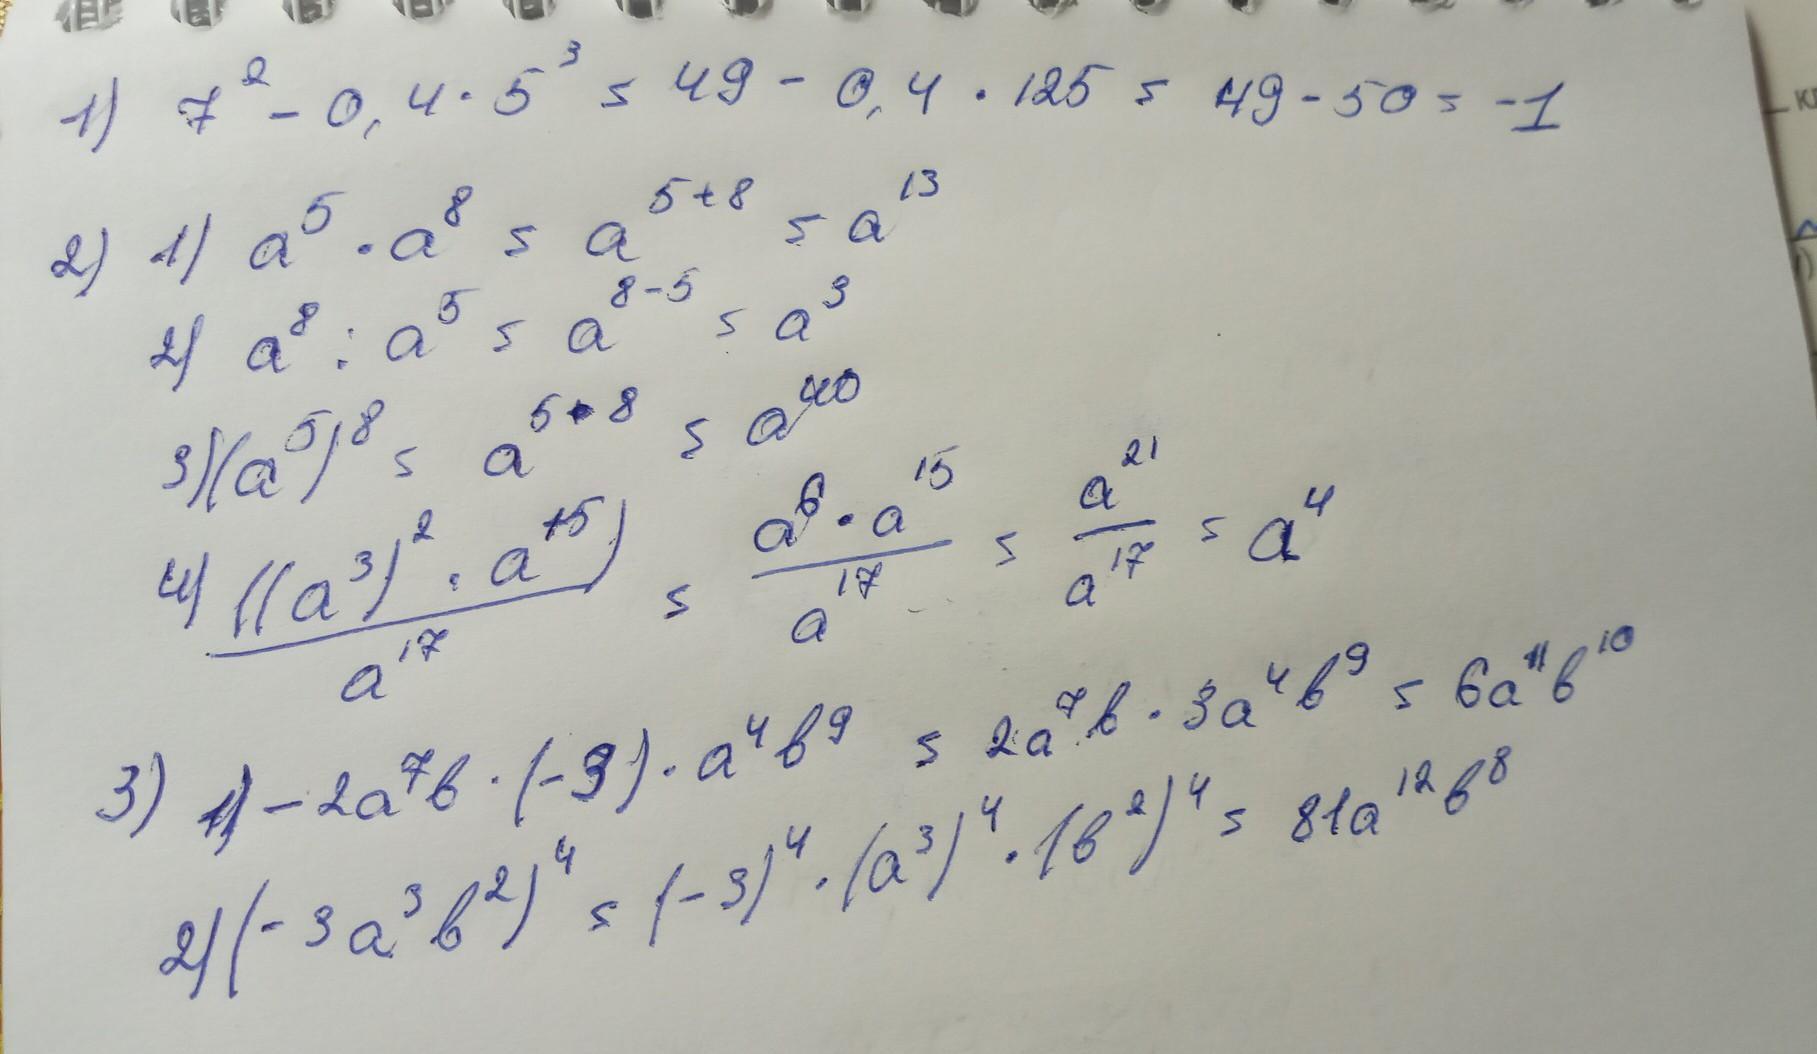 1) 7² - 0,4 · 5³ = 49 - 0,4 · 125 = 49 - 50 = -1
2) 1) a⁵ · a⁸ = a⁵⁺⁸ = a¹³
2) a⁸ : a⁵ = a⁸⁻⁵ = a³
3) (a⁵)⁸ = a^(5·8) = a⁴⁰
4) ((a³)² · a¹⁵) / a¹⁷ = a⁶ · a¹⁵ / a¹⁷ = a²¹ / a¹⁷ = a⁴
3) 1) -2a⁷b · (-3) · a⁴b⁹ = 2a⁷b · 3a⁴b⁹ = 6a¹¹b¹⁰
2) (-3a³b²)⁴ = (-3)⁴ · (a³)⁴ · (b²)⁴ = 81a¹²b⁸